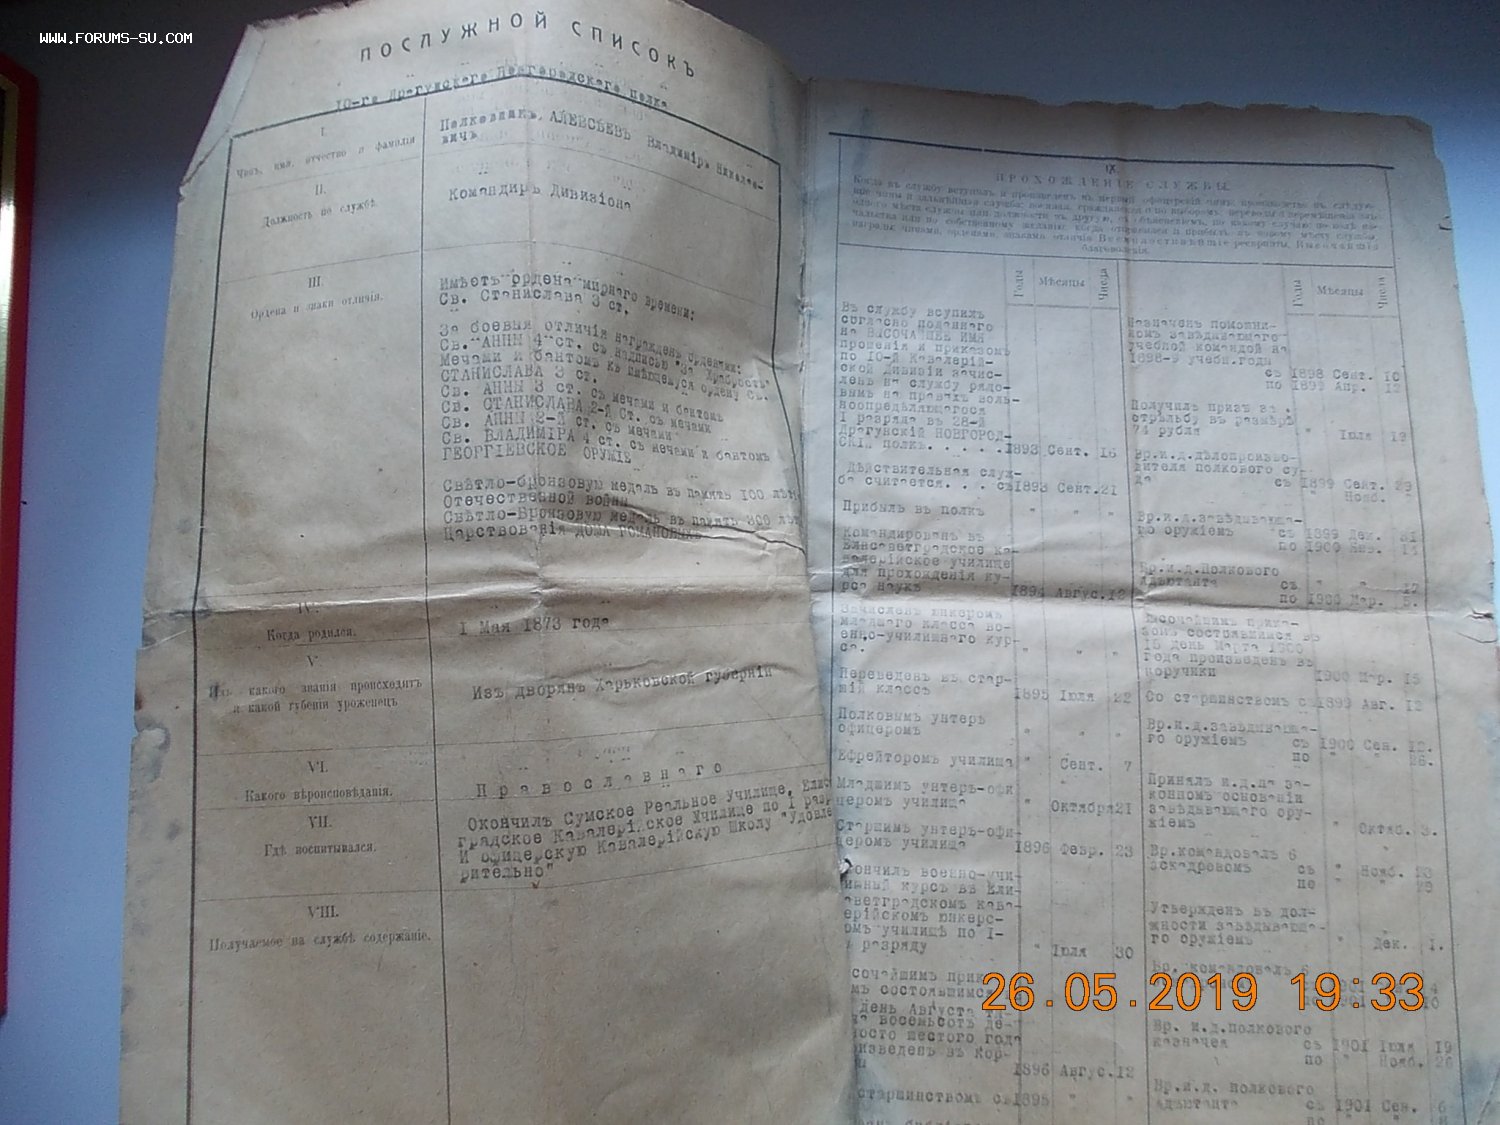 WWW.FORUMS-SU.COM
ПОСЛУЖНОЙ СПИСОКЪ
10-го Драгунскаго Новгородскаго полка
I.
Чинъ, имя, отчество и фамилія
Полковникъ, АЛЕКСѢЕВЪ Владиміръ Николае-
вичъ
II.
Должность по службѣ.
Командиръ Дивизіона
III.
Ордена и знаки отличія.
Имѣетъ ордена мирнаго времени:
Св. Станислава 3 ст.
За боевыя отличія награжденъ орденами:
Св. АННЫ 4 ст. съ надписью "За Храбрость"
Мечами и бантомъ къ имѣющемуся ордену Св.
СТАНИСЛАВА 3 ст.
Св. АННЫ 3 ст. съ мечами и бантомъ
Св. СТАНИСЛАВА 2-й Ст. съ мечами
Св. АННЫ 2-й ст. съ мечами
Св. ВЛАДИМІРА 4 ст. съ мечами и бантомъ
ГЕОРГІЕВСКОЕ ОРУЖІЕ
Свѣтло-бронзовую медаль въ память 100 лѣт
Отечественной войны
Свѣтло-Бронзовую медаль въ память 300 лѣт
Царствованія ДОМА РОМАНОВЫХЪ
IV.
Когда родился.
1 Мая 1873 года
V.
Изъ какого званія происходитъ
и какой губерніи уроженецъ
Изъ дворянъ Харьковской губерніи
VI.
Какого вѣроисповѣданія.
Православнаго
VII.
Гдѣ воспитывался.
Окончилъ Сумское Реальное училище, Елис
градское Кавалерійское Училище по 1 разр
И офицерскую Кавалерійскую Школу "Удовле
рительно"
VIII.
Получаемое на службѣ содержаніе.
IX.
ПРОХОЖДЕНІЕ СЛУЖБЫ.
Когда въ службу вступилъ и произведенъ въ первый офицерскій чинъ; производство въ слѣдую-
щіе чины и дальнѣйшая служба: военная, гражданская и по выборамъ; переводы и перемѣщенія изъ
одного мѣста службы или должности въ другую, съ объясненіемъ, по какому случаю: по волѣ на-
чальства или по собственному желанію; когда отправился и прибылъ къ новому мѣсту службы;
награды: чинами, орденами, знаками отличія Всемилостивѣйшіе рескрипты, Высочайшія
благоволенія.
Годы Мѣсяцы Числа
Въ службу вступилъ
согласно поданнаго
на ВЫСОЧАЙШЕЕ ИМЯ
прошенія и приказомъ
по 10-й Кавалерій-
ской Дивизіи зачис-
ленъ на службу рядо-
вымъ на правахъ воль-
ноопредѣляющагося
I разряда въ 28-й
Драгунскій НОВГОРОД-
СКІЙ полкъ. . . . . . 1893 Сент. 16
Дѣйствительная служ-
ба считается. . . съ 1893 Сент. 21
Прибылъ въ полкъ " " "
Командированъ въ
Елисаветградское ка-
валерійское училище
для прохожденія ку-
рса наукъ 1894 Авгус. 12
Зачисленъ юнкеромъ
младшаго класса во-
енно-училищнаго кур-
са. " " "
Переведенъ въ стар-
шій классъ 1895 Іюля 22
Полковымъ унтеръ
офицеромъ " " "
Ефрейторомъ училища " Сент. 7
Младшимъ унтеръ-офи
церомъ училища " Октября 21
Старшимъ унтеръ-офи-
церомъ училища 1896 Февр. 23
кончилъ военно-учи-
лищный курсъ въ Ели-
заветградскомъ кава-
ерійскомъ юнкерс-
омъ училищѣ по I-
у разряду " Іюля 30
сочайшимъ прик
мъ состоявшимся
день Августа ты-
ча восемьсотъ де-
носто шестого года
оизведенъ въ Кор-
1896 Авгус. 12
старшинствомъ съ 1895 " "
Годы Мѣсяцы Числа
Назначенъ помощни-
комъ завѣдывающаго
учебной командой на
1898-9 учебн.годы
съ 1898 Сент. 10
по 1899 Апр. 12
Получилъ призъ за
стрѣльбу въ размѣрѣ
74 рубля " Іюля 13
Вр.и.д.дѣлопроизво-
дителя полкового су-
да съ 1899 Сент. 29
" Нояб. "
Вр.и.д.завѣдывающа-
го оружіемъ съ 1899 Дек. 31
по 1900 Янв. 14
Вр.и.д.Полкового
адъютанта съ " " 17
по 1900 Мар. 5.
Высочайшимъ прика-
зомъ состоявшимся въ
15 день Марта 1900
года произведенъ въ
поручики 1900 Мар. 15
Со старшинствомъ съ 1899 Авг. 12
Вр.и.д.завѣдывающа-
го оружіемъ съ 1900 Сен. 12.
по " " 26.
Принялъ и.д.на за-
конномъ основаніи
завѣдывающаго ору-
жіемъ " Октяб. 3.
Вр.командовалъ 6
эскадрономъ съ " Нояб. 23
по " " 29
Утвержденъ въ дол-
жности завѣдывающа-
го оружіемъ " Дек. 1.
Вр. командовалъ 6
Вр. и.д.полкового
казначея съ 1901 Іюля 19
по " Нояб. 26
Вр.и.д. полкового
адъютанта съ 1901 Сен. 6
по " "
26.05.2019 19:33